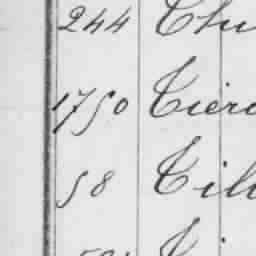 244 Thu
1750 Tierc
58 Til